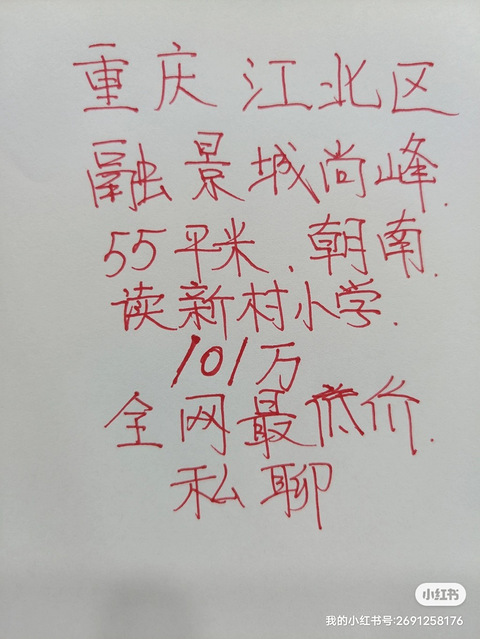 重庆江北区
融景城尚峰.
55平米、朝南.
读新村小学.
101万
全网最底价.
私聊
小红书
我的小红书号:2691258176